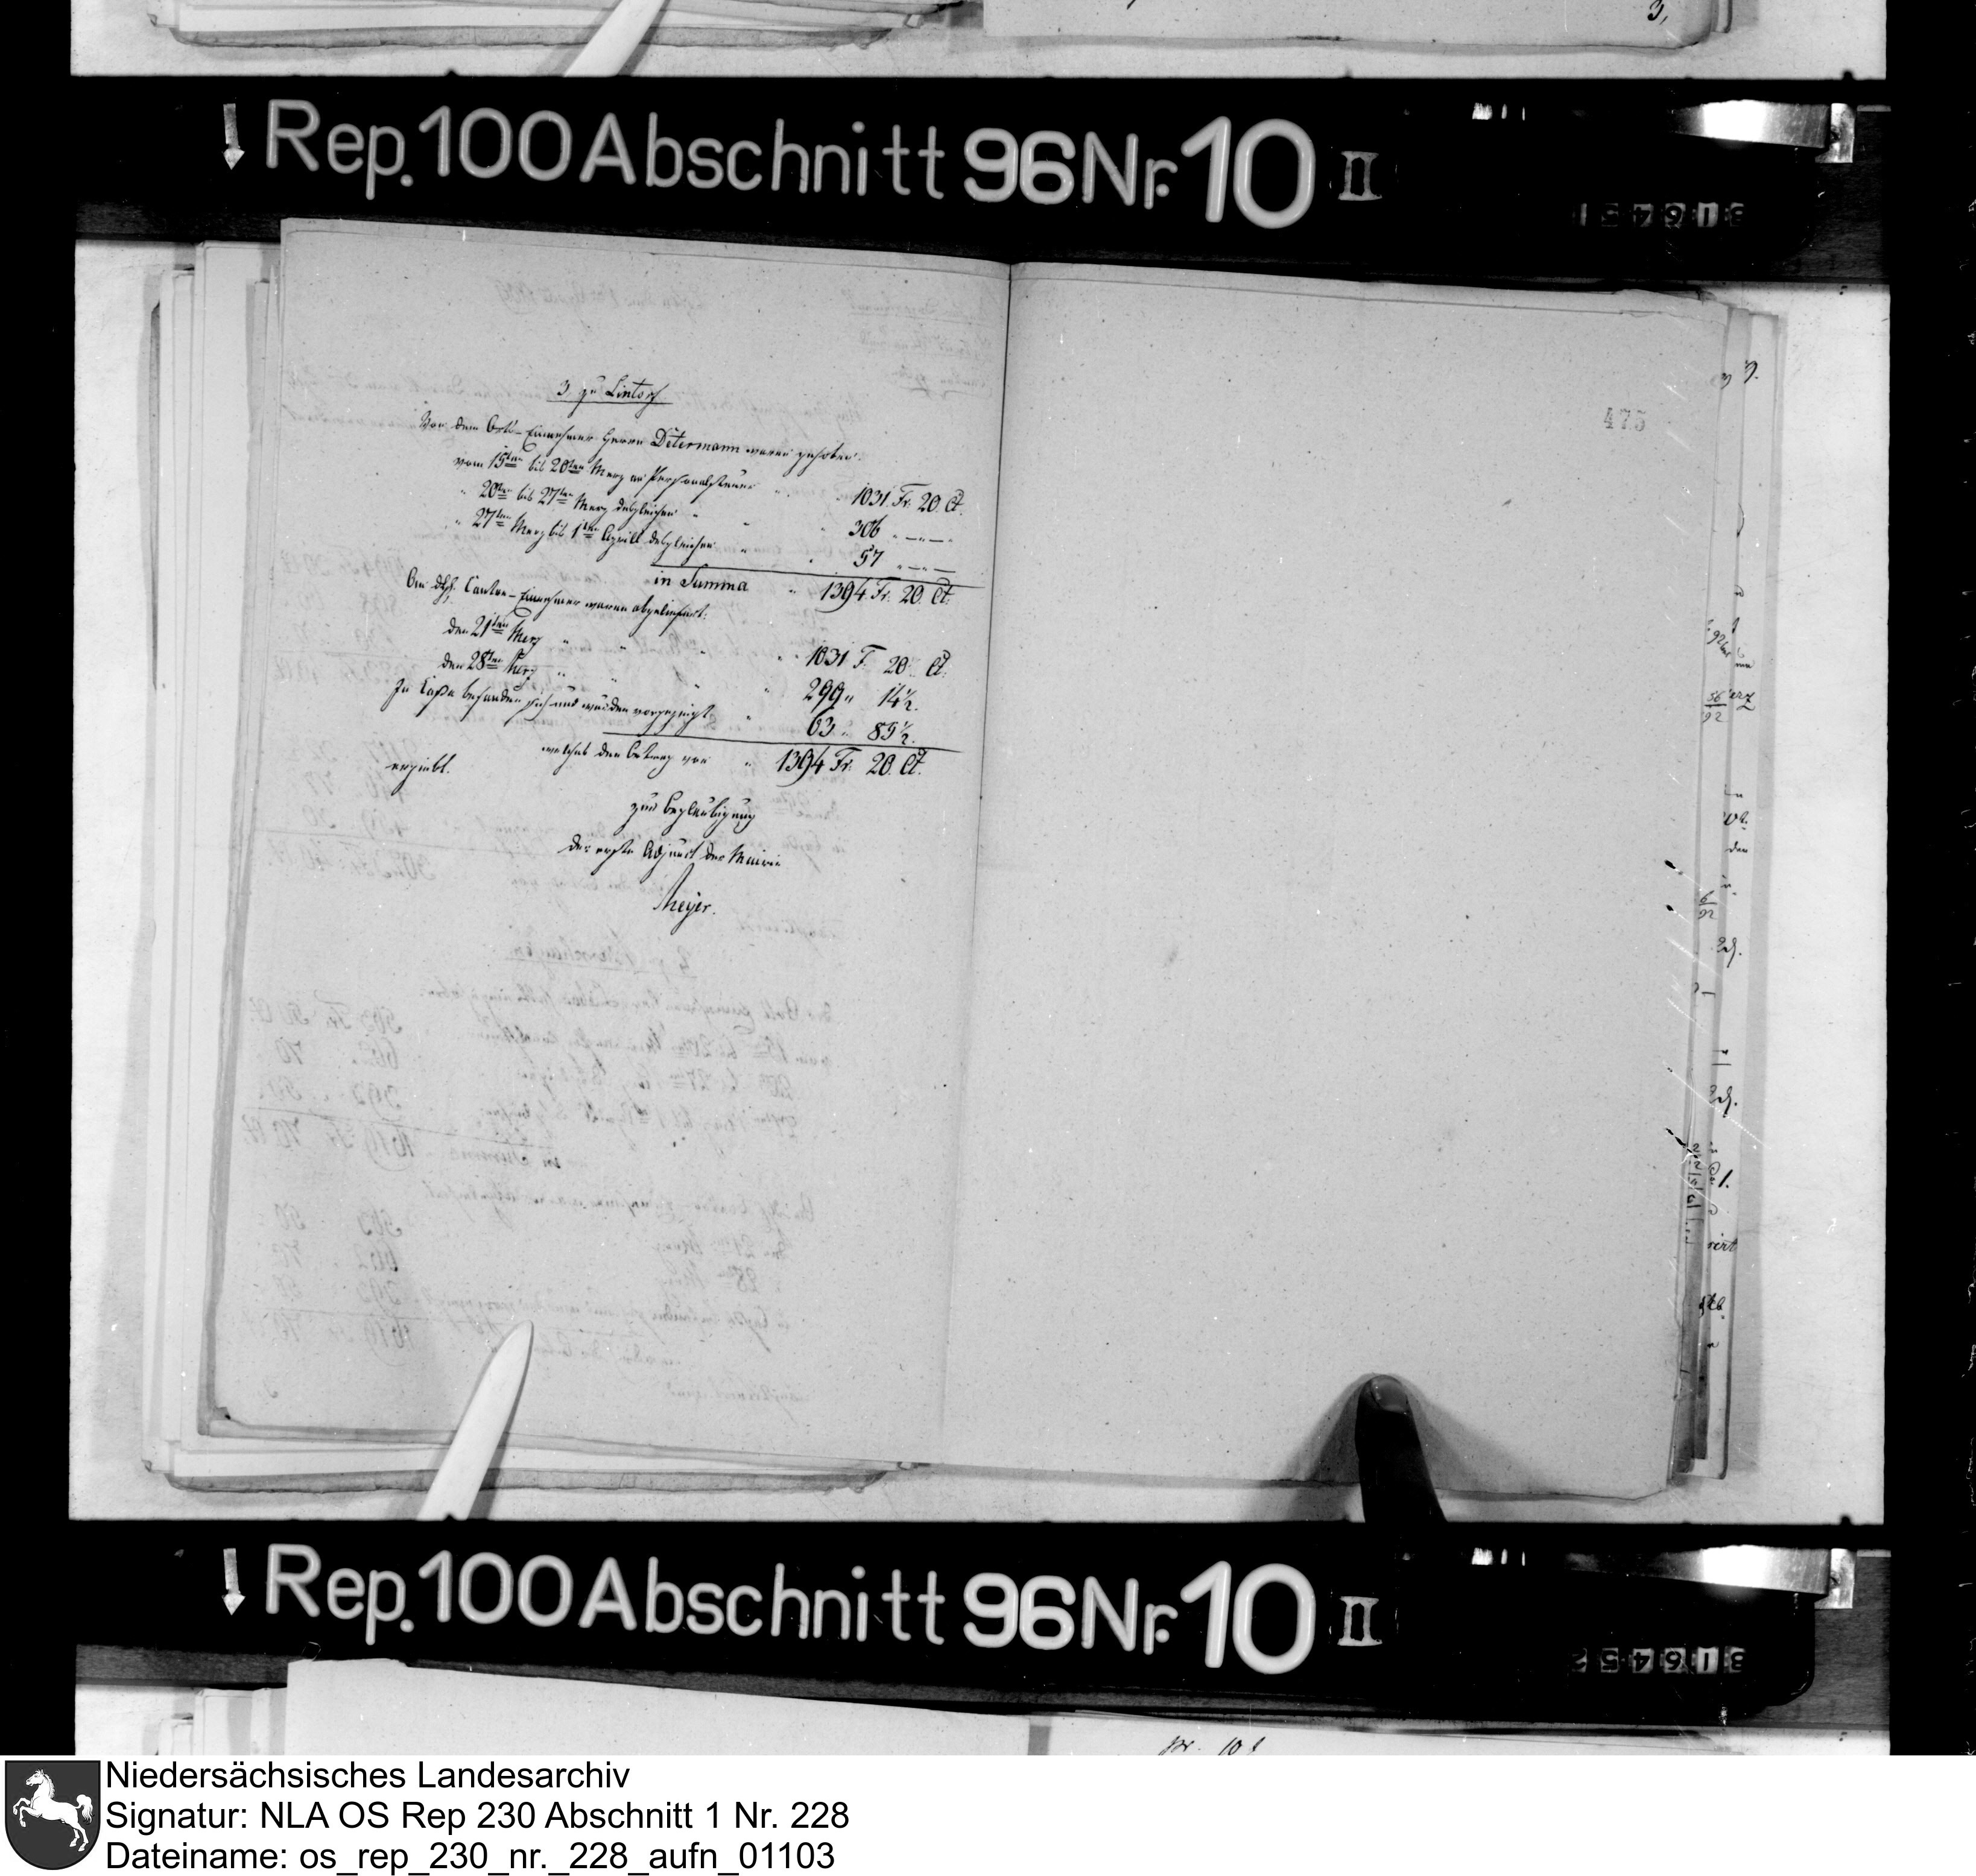 3,
Rep. 100 Abschnitt 96 Nr. 10 II
316451
475
3, zu Lintorf
Von dem Orts-Einnehmer Herrn Determann waren gehoben:
vom 15ten bis 20ten Merz an Personalsteuer " " 1031 Fr. 20 Ct.
" 20ten bis 27ten Merz desgleichen " " " 306 " — " —
" 27ten Merz bis 1ten Aprill desgleichen " " 57 " — " —
in Summa " 1394 Fr. 20 Ct.
An dhh. Canton-Einnehmer waren abgeliefert:
den 21ten Merz " " " " 1031 F. 20 Ct.
den 28ten Merz " " " " 299 " 14½.
In Cassa befanden sich und wurden vorgezeigt " 63 " 85½.
welches den Betrag von " 1394 Fr. 20 Ct.
ergiebt.
zur Beglaubigung
der erste Adjunct der Mairie
Meyer.
Rep. 100 Abschnitt 96 Nr. 10 II
316452
Niedersächsisches Landesarchiv
Signatur: NLA OS Rep 230 Abschnitt 1 Nr. 228
Dateiname: os_rep_230_nr._228_aufn_01103